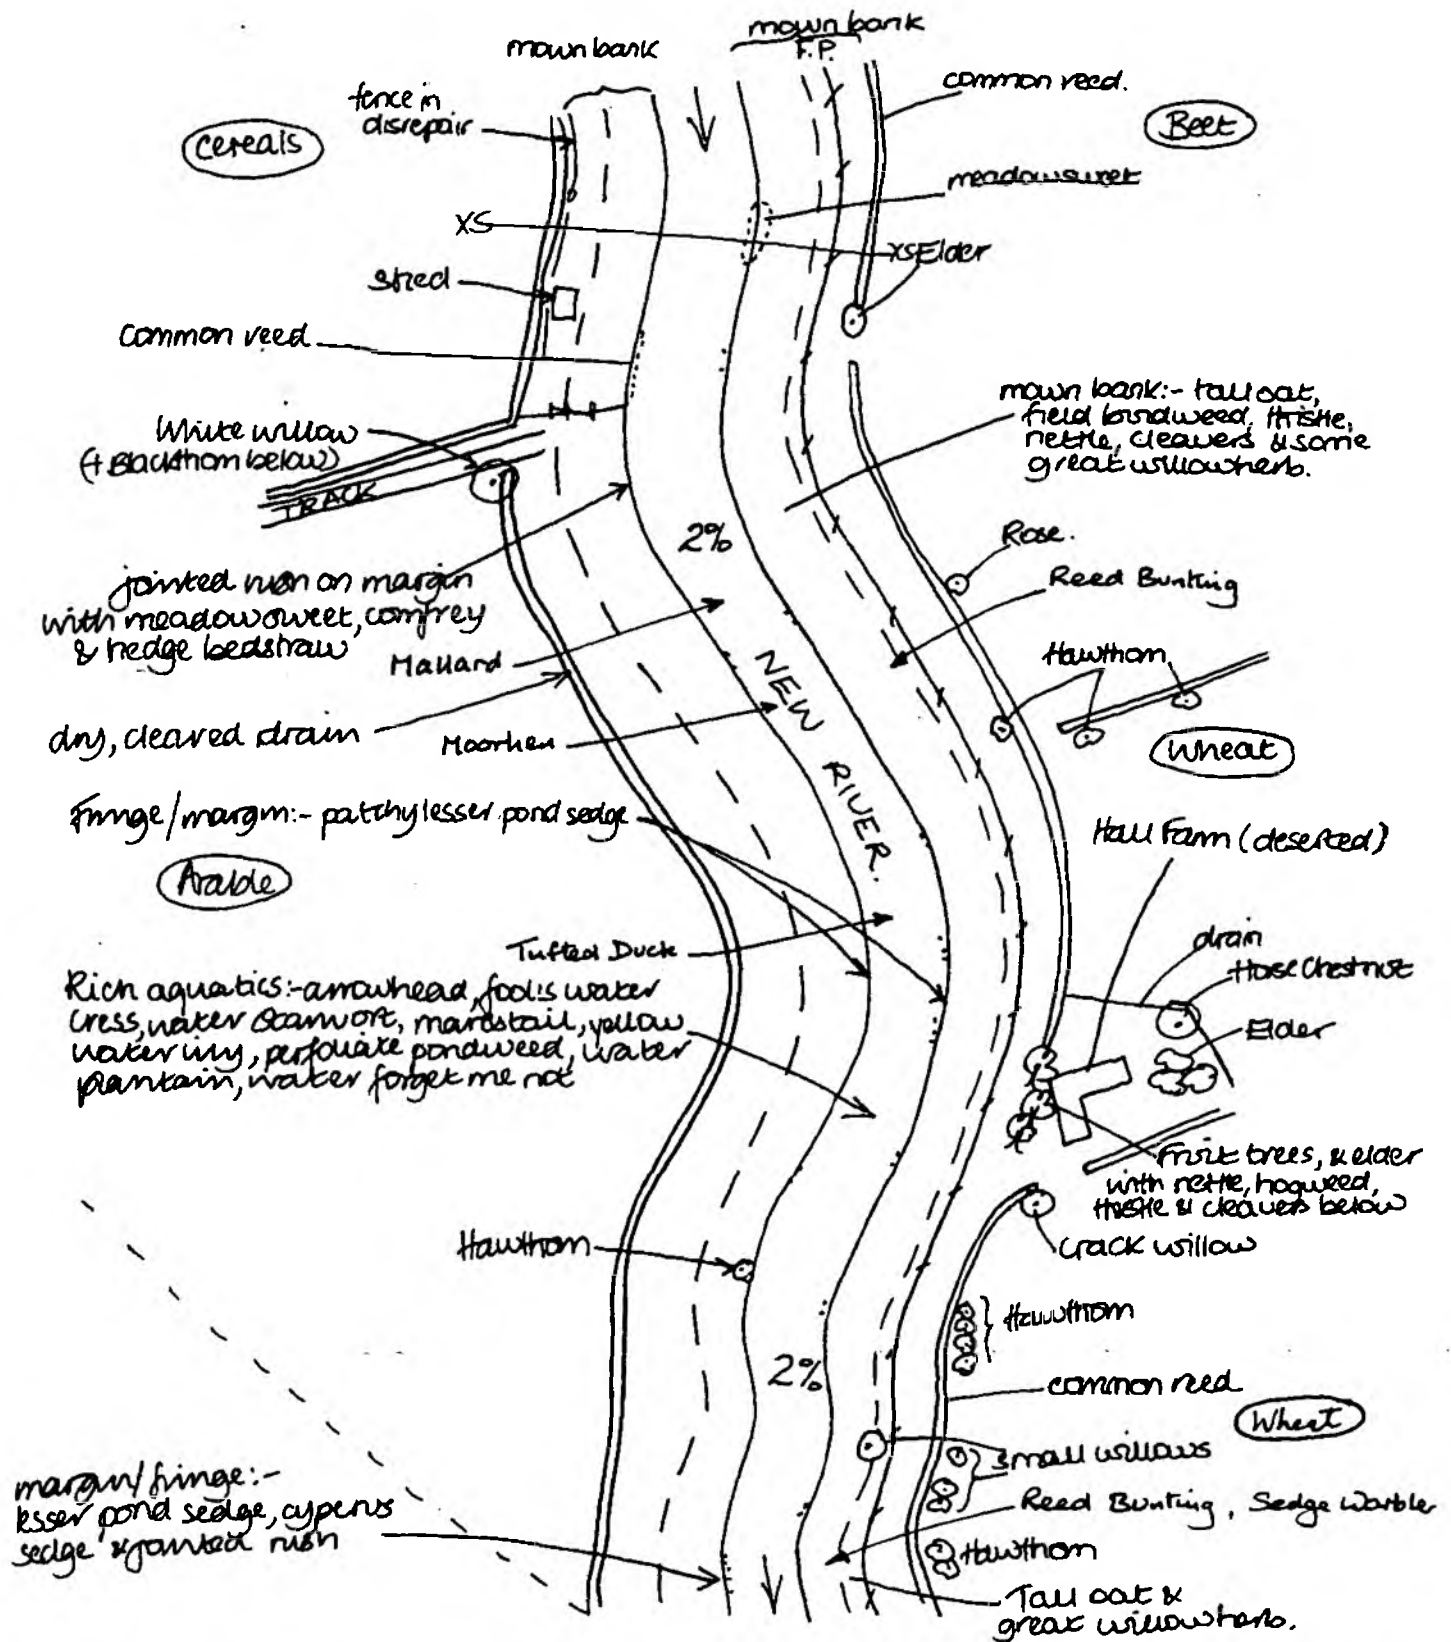 mown bank
mown bank
F.P.
common reed.
fence in
disrepair
Cereals
Beet
meadowsweet
XS
XS Elder
shed
Common reed
mown bank:- tall oat,
field bindweed, thistle,
nettle, cleavers & some
great willowherb.
White willow
(+ Blackthorn below)
TRACK
2%
Rose.
jointed rush on margin
with meadowsweet, comfrey
& hedge bedstraw
Reed Bunting
Mallard
Hawthorn
NEW RIVER.
dry, cleared drain
Moorhen
Wheat
Fringe/margin:- patchy lesser pond sedge
Hall Farm (deserted)
Arable
Tufted Duck
drain
Horse Chestnut
Elder
Rich aquatics:- arrowhead, fool's water
cress, water starwort, marestail, yellow
water lily, perfoliate pondweed, water
plantain, water forget me not
Fruit trees, & elder
with nettle, hogweed,
thistle & cleavers below
Crack willow
Hawthorn
Hawthorn
2%
common reed
Wheat
small willows
margin/fringe:-
lesser pond sedge, cyperus
sedge & jointed rush
Reed Bunting, Sedge Warbler
Hawthorn
Tall oat &
great willowherb.